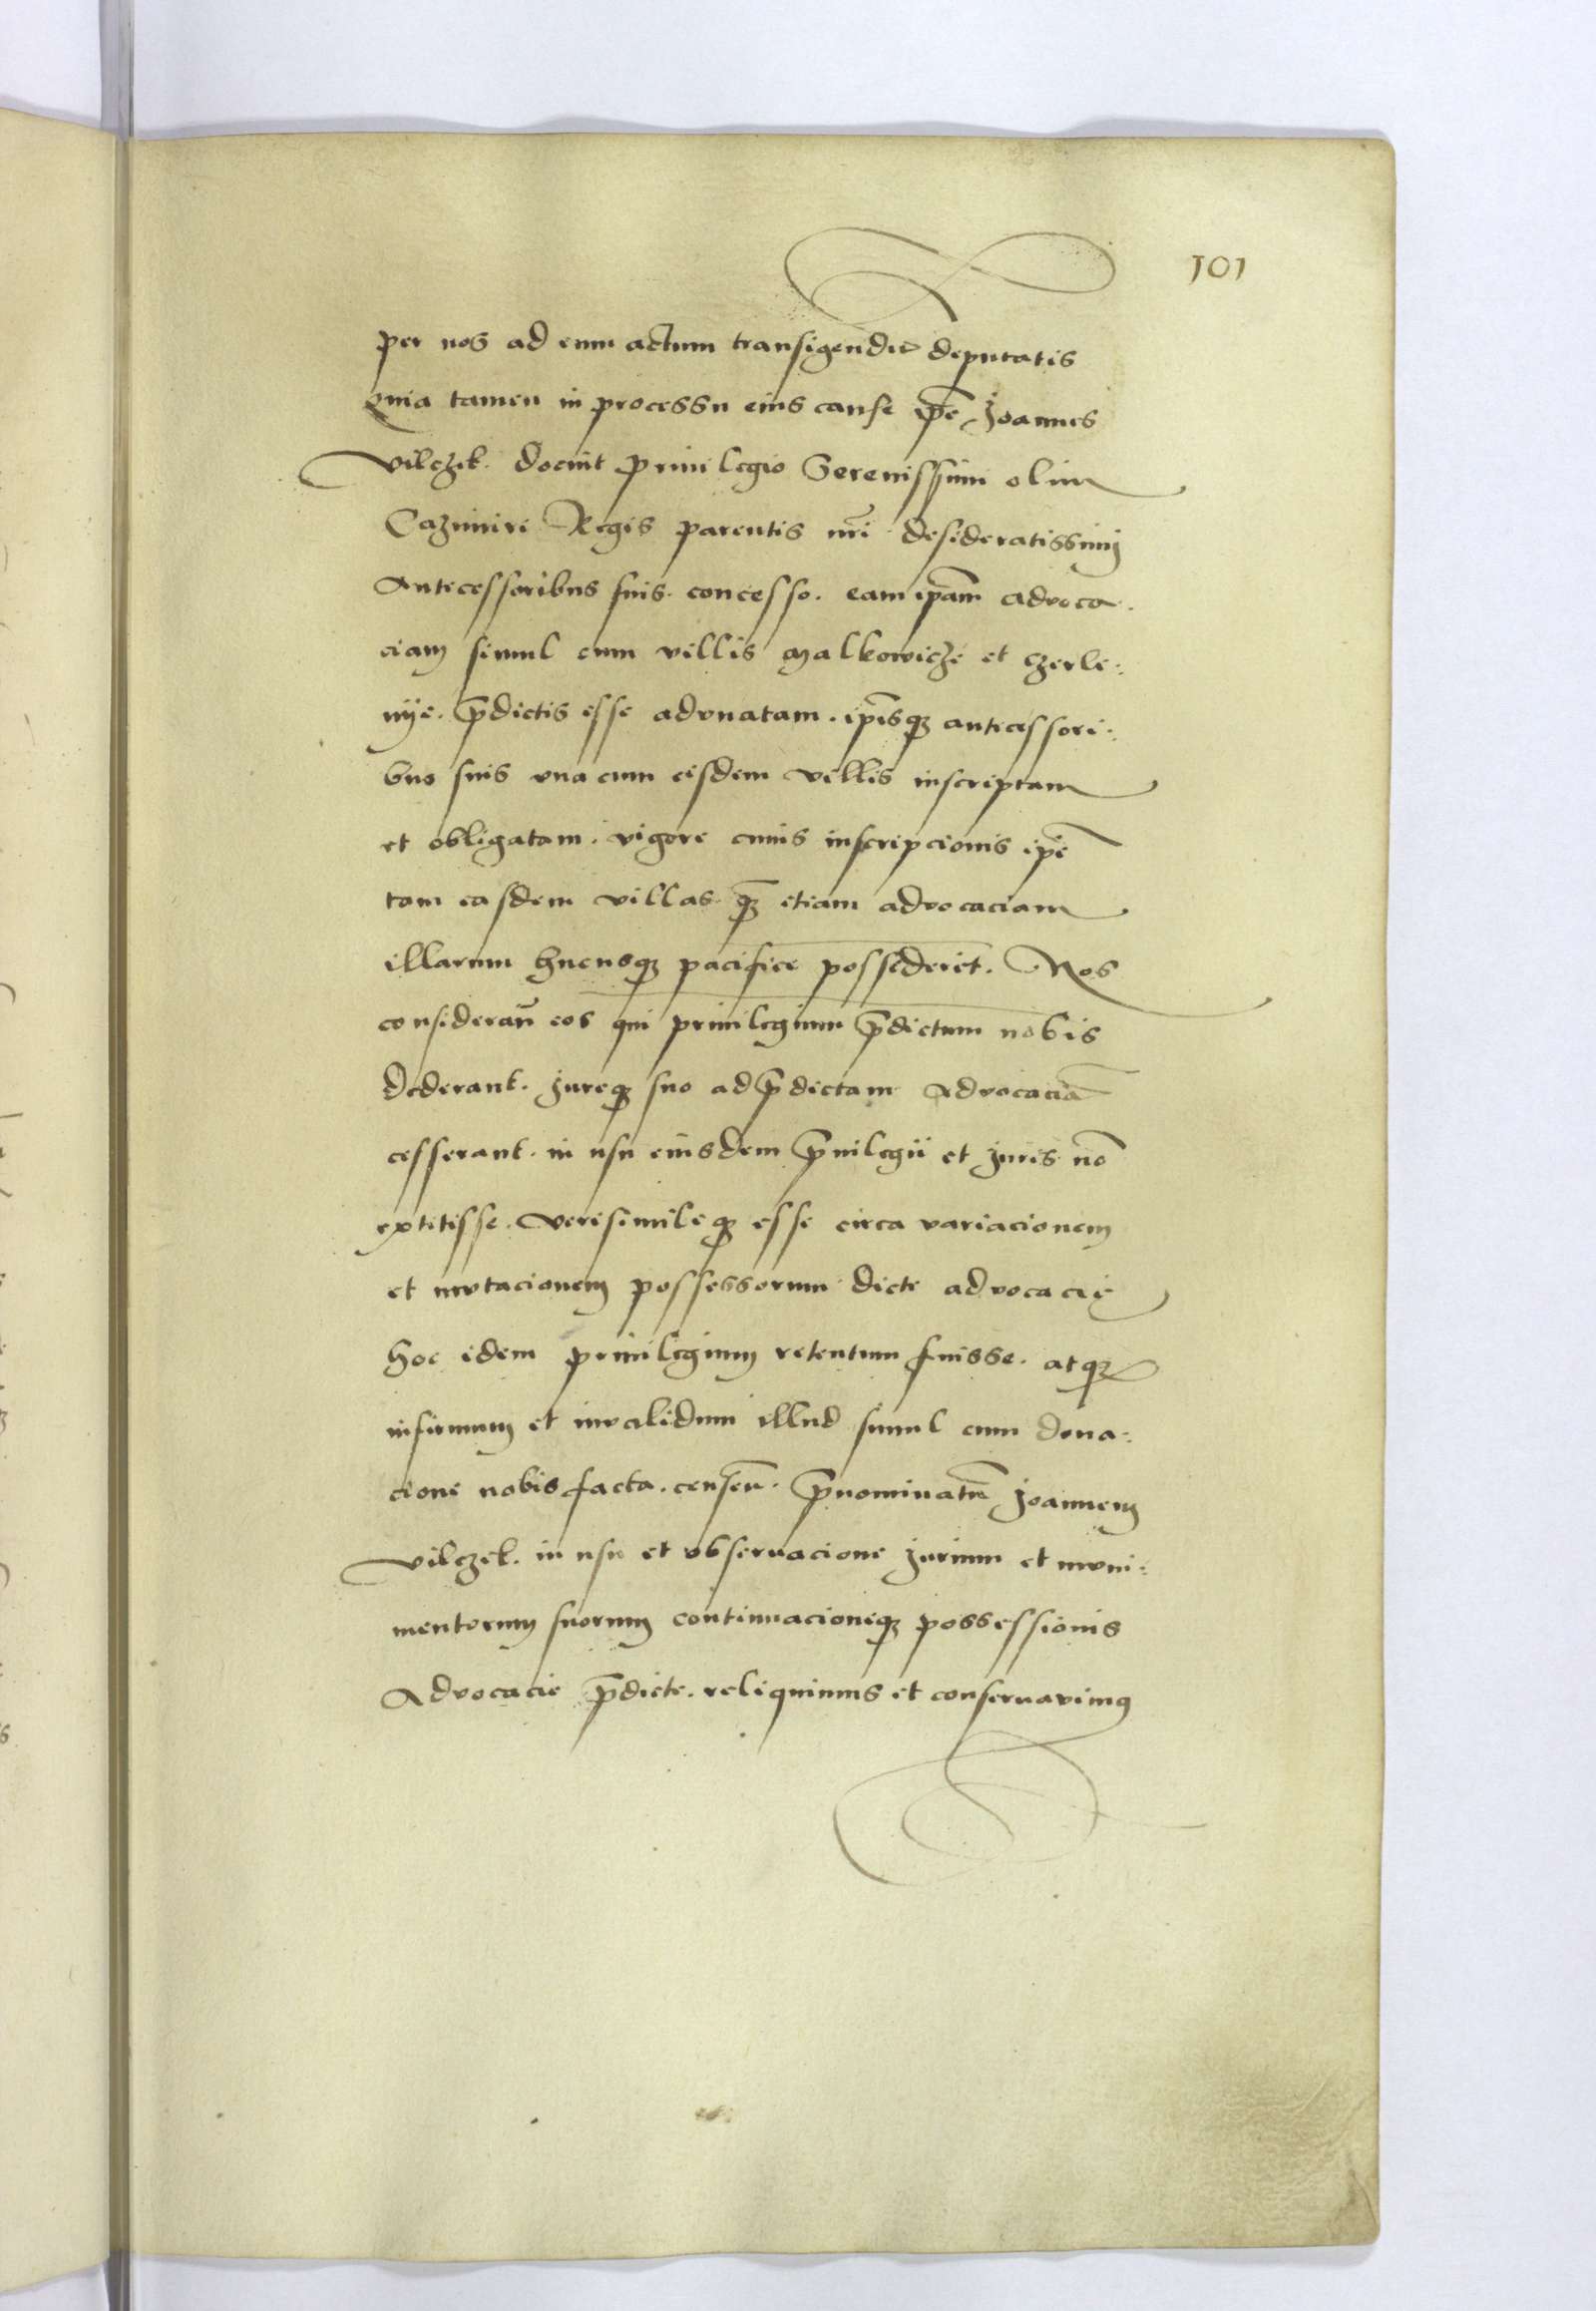 101
per nos ad eum actum transigendũ deputatis
Quia tamen in processu eius cause ip̃e Joannes
Vilczek. docuit privilegio Serenissimi olim
Cazimiri Regis parentis nr̃i desideratissimj
Antecessoribus suis. concesso. eam ip̃am advoca.
ciam simul cum villis Malkowicze et Czerle:
nye. p̃dictis esse adunatam. ip̃isq̃ antecessori:
bus suis una cum eisdem villis inscriptam
et obligatam. vigore cuius inscripcionis ip̃e
tam easdem villas. q̃ etiam advocaciam
illarum hucusq̃ pacifice possederit. Nos
considerañ eos qui privilegium p̃dictum nobis
dederant. Jureq̃ suo ad p̃dictam Advocaciã
cesserant. in usu eiusdem p̃vilegii et Juris nõ
extitisse. Verisimileq̃ esse circa variacionem
et mutacionem possessorum dicte advocacie
hoc idem privilegium retentum fuisse. atq̃
infirmum et invalidum illud simul cum dona:
cione nobis facta. censeñ. p̃nominatũ Joannem
Vilczek. in usu et observacione Jurium et muni:
mentorum suorum continuacioneq̃ possessionis
Advocacie p̃dicte. reliquimus et conservavimus